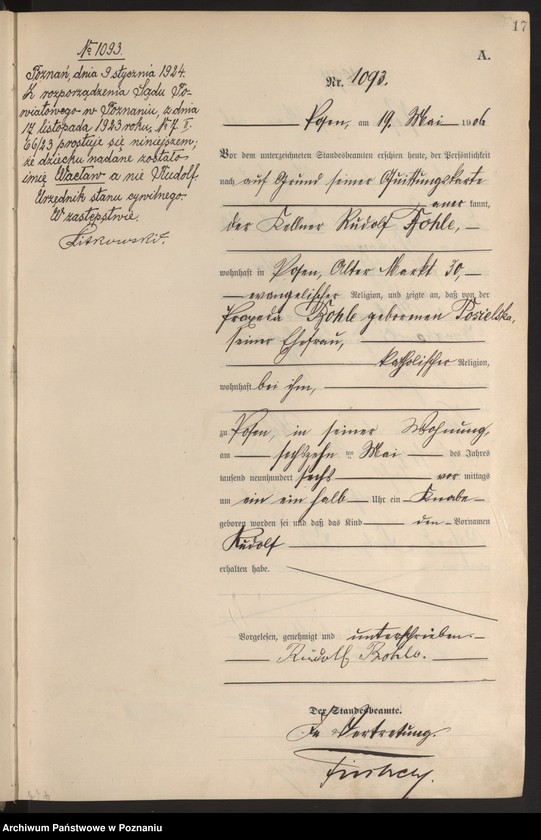 17
A.
№ 1093.
Poznań, dnia 9 stycznia 1924.
Z rozporządzenia Sądu Po-
wiatowego w Poznaniu, z dnia
17 listopada 1923 roku, № 7. X.
66/23 prostuje się niniejszem,
że dziecku nadane zostało
imię Wacław a nie Rudolf
Urzędnik stanu cywilnego
W zastępstwie.
Nr. 1093.
Posen, am 19. Mai 1906
Vor dem unterzeichneten Standesbeamten erschien heute, der Persönlichkeit
nach auf Grund seiner Quittungskarte
aner kannt,
der Kellner Rudolf Bohle,
wohnhaft in Posen, Alter Markt 30,
evangelischer Religion, und zeigte an, daß von der
Bohle geborenen
seiner Ehefrau,
katholischer Religion,
wohnhaft bei ihm,
zu Posen, in seiner Wohnung,
am sechszehn ten Mai des Jahres
tausend neunhundert sechs vor mittags
um ein ein halb Uhr ein Knabe
geboren worden sei und daß das Kind den Vornamen
Rudolf
erhalten habe.
Vorgelesen, genehmigt und unterschrieben.
Rudolf Bohle.
Der Standesbeamte.
In Vertretung.
Archiwum Państwowe w Poznaniu